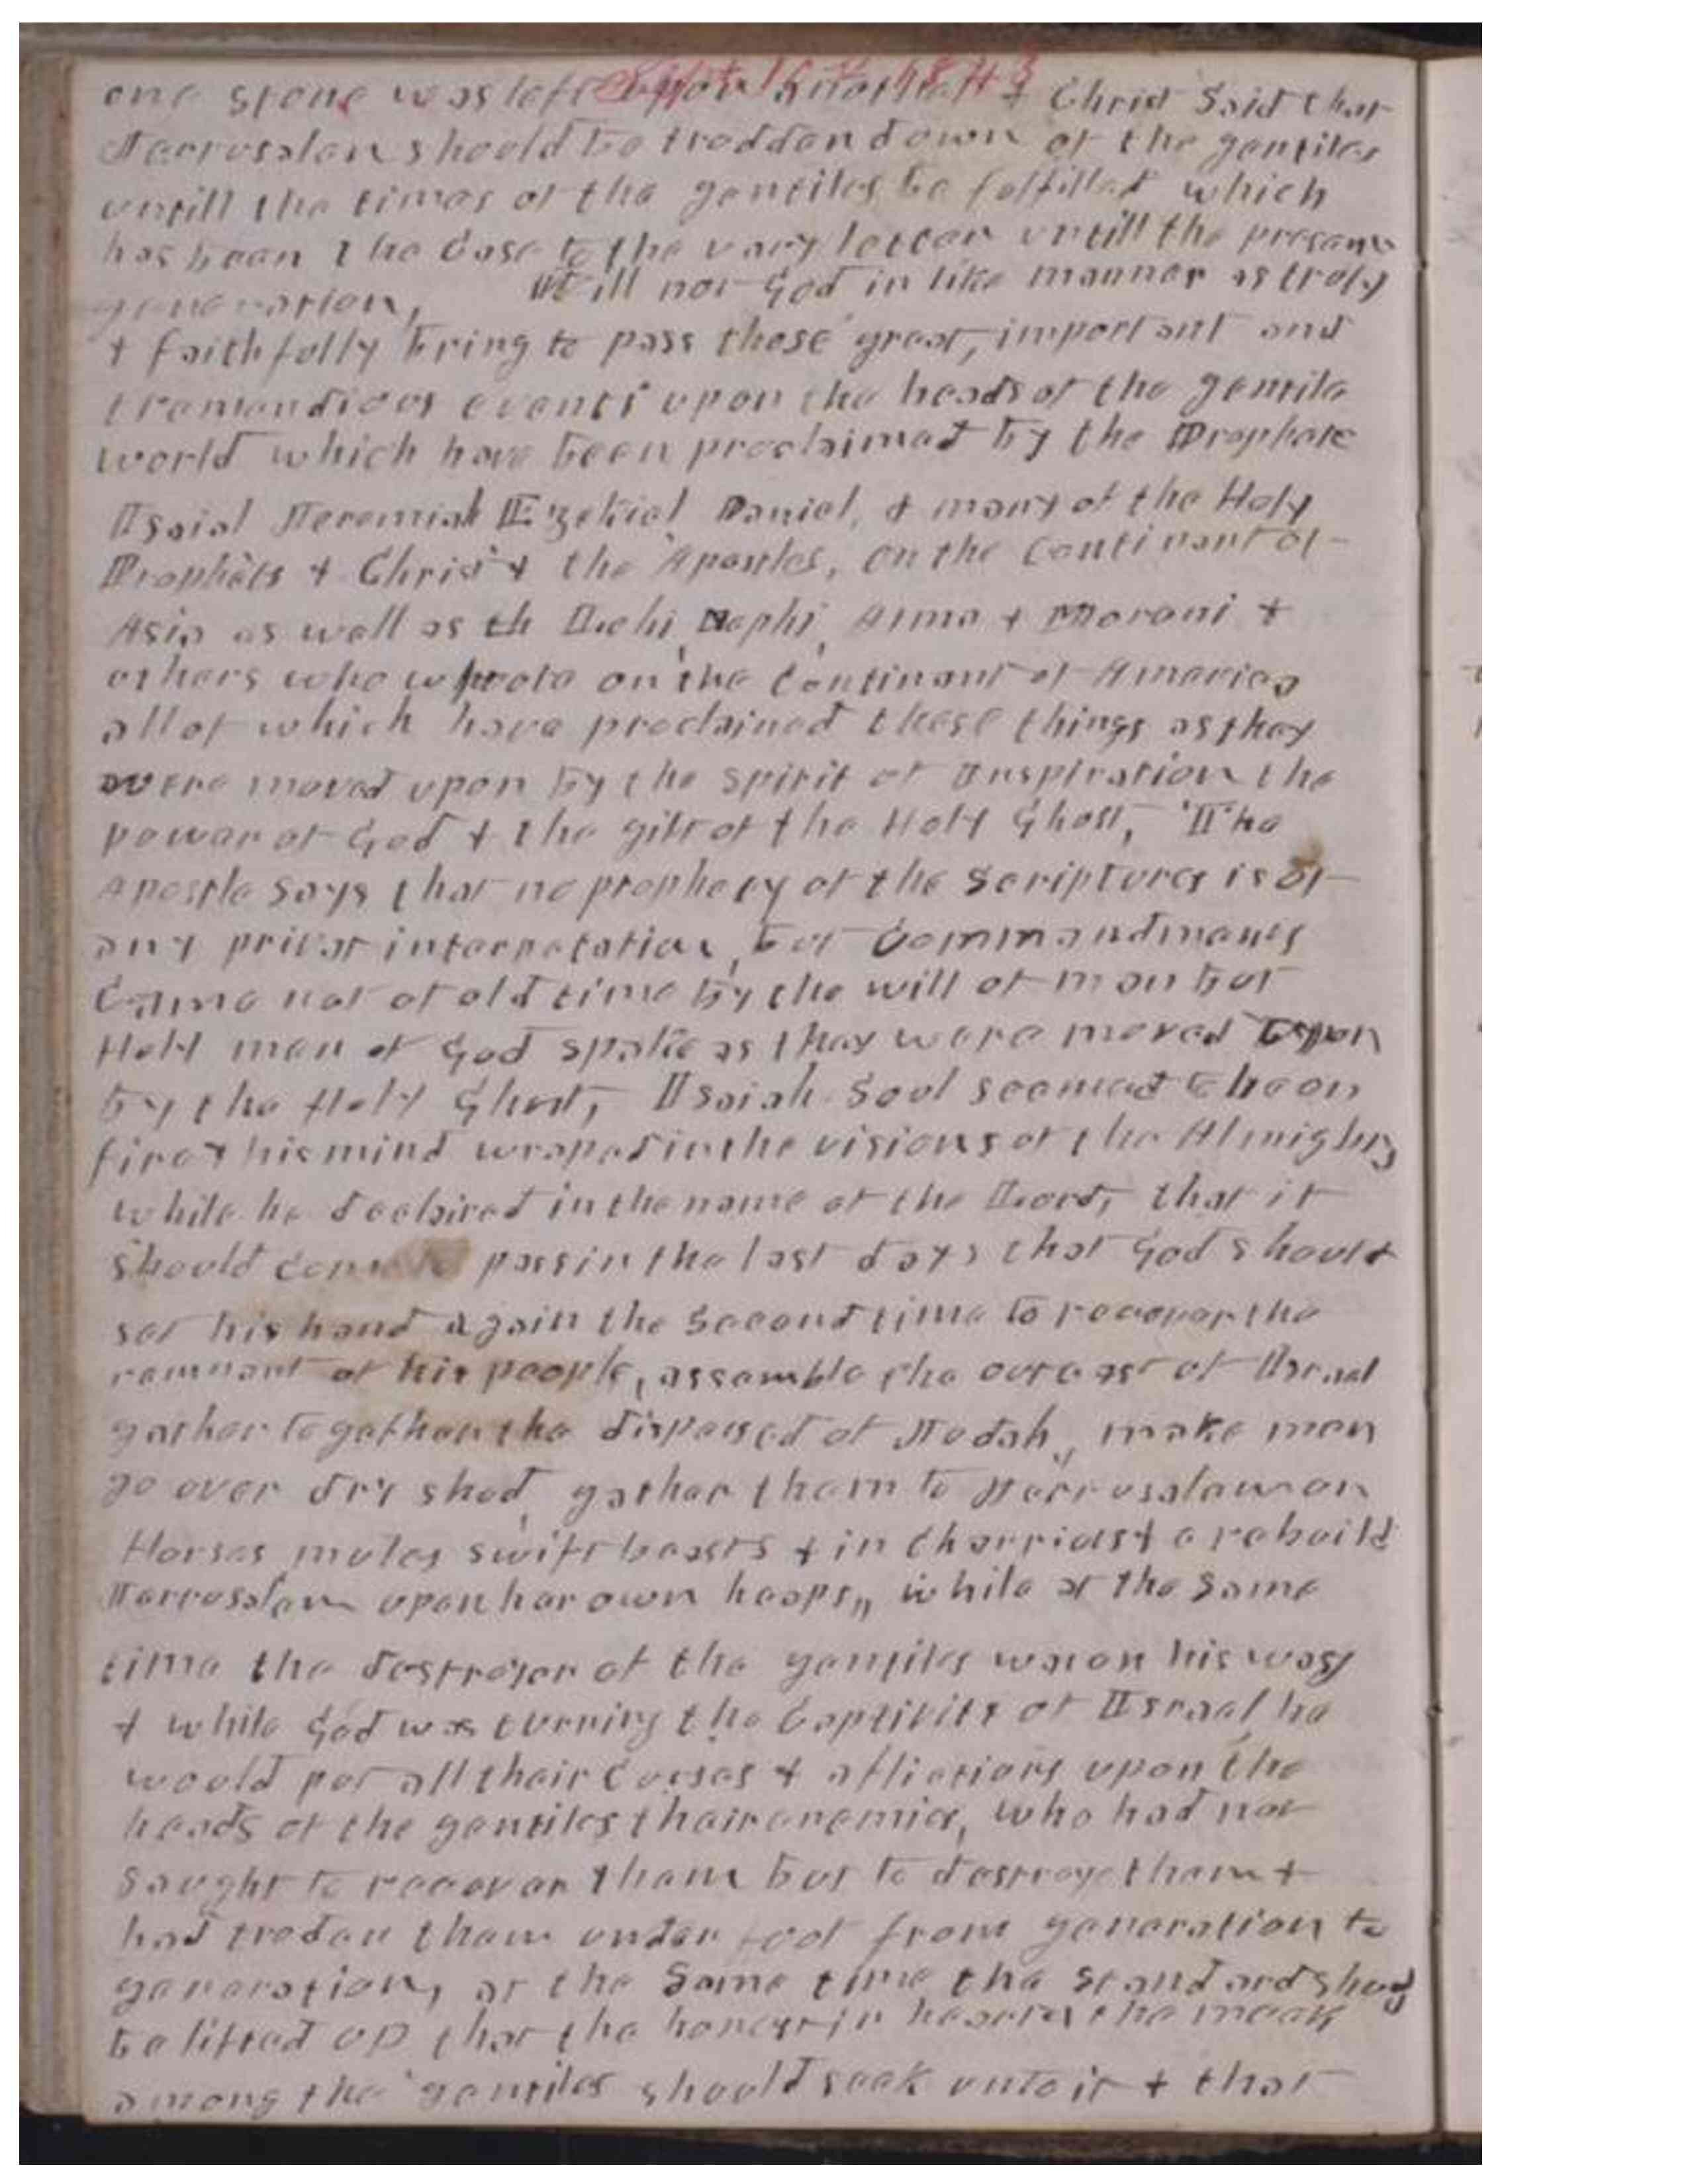 Sept 10th 1843
one stone was left upon another & Christ Said that
Jerrusalem should be trodden down of the gentiles
untill the times of the gentiles be fulfilled which
has been the Case to the vary letter untill the present
generation, Will not God in like manner as truly
& faithfully bring to pass those great, important and
tremendious events upon the heads of the gentile
world which have been proclaimed by the Prophets
Isaial Jeremiah Ezekiel Daniel, & many of the Holy
Prophets & Christ & the Apostles, on the Continant of
Asia as well as th Lehi, Nephi, Alma & Moroni &
others who wrote on the Continant of America
all of which have proclaimed these things as they
were moved upon by the spirit of Inspiration the
power of God & the gift of the Holy Ghost, The
Apostle says that no prophecy of the Scriptures is of
any privat interpetation, but Commandments
Came not of old time by the will of man but
Holy men of God spake as they were moved upon
by the Holy Ghost, Isaiah Soul seemed to be on
fire & his mind wraped in the visions of the Almighty
while he declaired in the name of the Lord, that it
should come to pass in the last days that God should
set his hand again the Second time to recover the
remnant of his people, assemble the outcast of Israel
gather together the dispersed of Judah, make men
go over dry shod, gather them to Jerrusalem on
Horses mules swift beasts & in Charriots & rebuild
Jerrusalem upon her own heaps,, while at the same
time the destroyer of the gentiles was on his way
& while God was turning the Captivity of Israel, he
would put all their Curses & aflictions upon the
heads of the gentiles their enemies, who had not
Saught to recover them but to destroye them &
had troden them under foot from generation to
generation, at the Same time the standard should
be lifted up that the honest in heart & the meek
among the gentiles should seek unto it & that